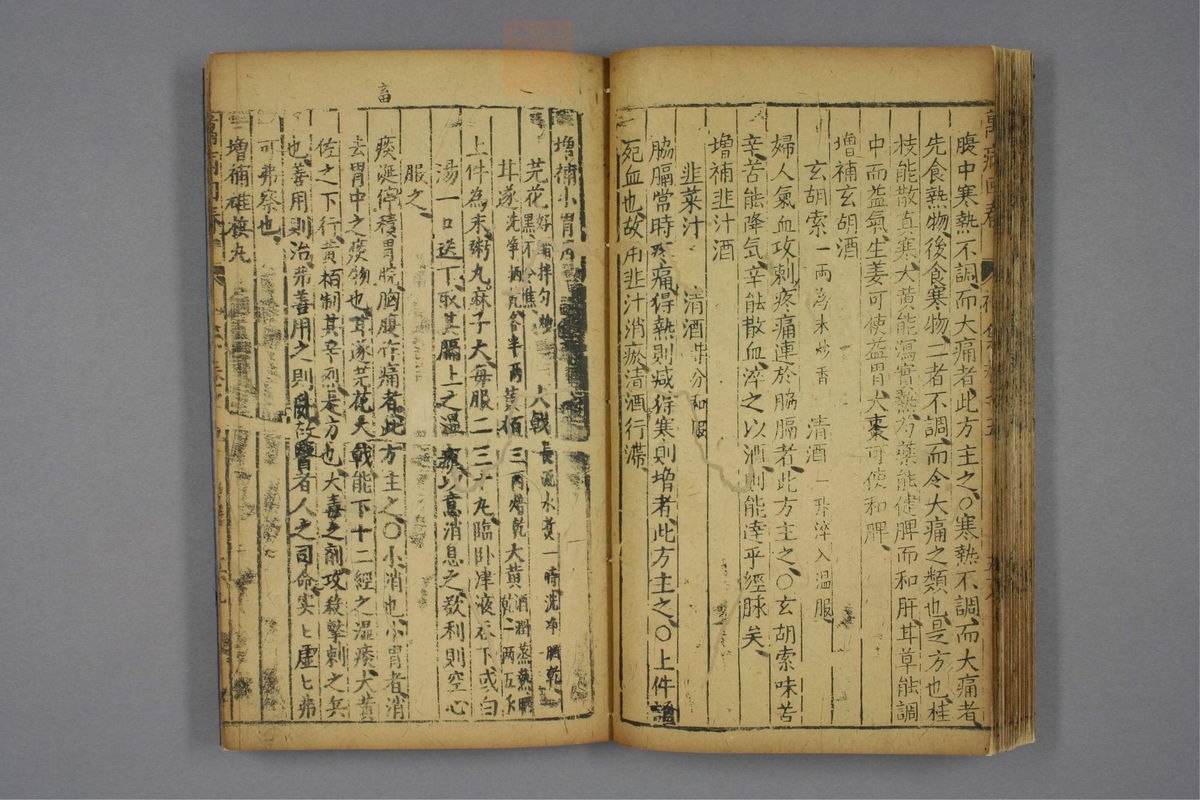 腹中寒熱不調、而大痛者、此方主之、○寒熱不調、而大痛者、
先食熱物、後食寒物、二者不調、而令大痛之類也、是方也、桂
枝能散眞寒、大黄能瀉實熱、芍藥能健脾而和肝、耳草能調
中而益氣、生姜可使益胃、大棗可使和脾、
增補玄胡酒
玄胡索一兩為末炒香 清酒一 淬入温服
婦人氣血攻刺疼痛連於脇膈者、此方主之、○玄胡索味苦
辛、苦能降气、辛能散血、淬之以酒、則能達乎經脉矣、
增補韭汁酒
韭菜汁 清酒 分和服
脇膈常時疼痛、得熱則减、得寒則増者、此方主之、○上件
死血也、故用韭汁消瘀、清酒行滯、
畜
增補小胃丹
芫花 好 拌勻 黑不令焦 大戟 長流水煮一時洗净晒乾
耳遂 洗净 半兩 黄栢 三兩 乾 大黄 酒潤蒸熟晒
上件為末、粥丸麻子大、每服二三十丸、臨卧津液吞下、或白
湯一口送下、取其膈上之濕 以意消息之、欲利則空心
服之、
痰涎停積、胃脘胸腹作痛者、此方主之、○小消也、小胃者、消
去胃中之痰物也、耳遂芫花大戟能下十二經之濕痰、大黄
佐之下行、黄栢制其辛烈、是方也、大毒之劑、攻殺撃刺之兵
也、善用則治、弗善用之則 、故醫者人之司命、实匕虚匕弗
可弗察也、
增補 丸